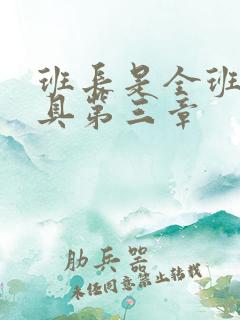 班長是全班
具第三章
肋兵器
未经同意禁止转载